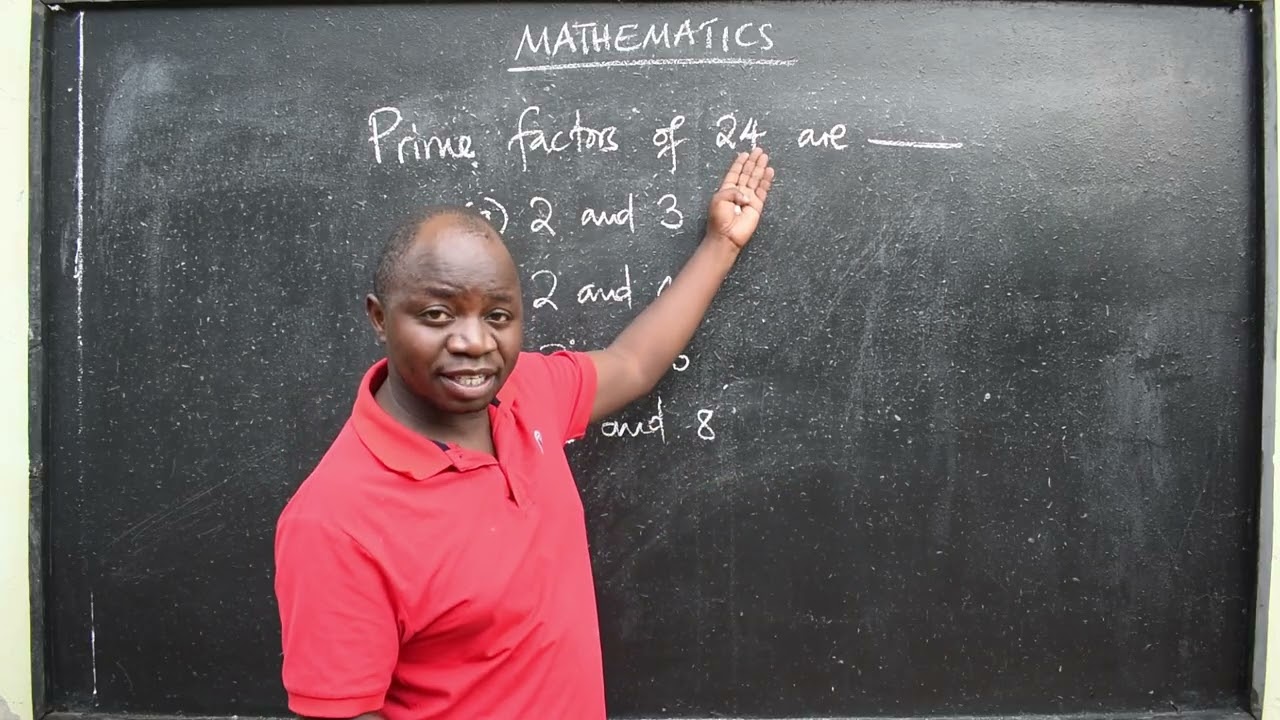 MATHEMATICS
Prime factors of 24 are ____
2 and 3
2 and
and 8